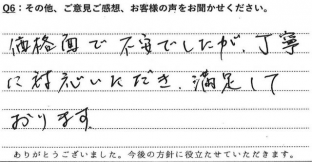 Q6：その他、ご意見ご感想、お客様の声をお聞かせください。
価格面で不安でしたが、丁寧
に対応いただき、満足して
おります。
ありがとうございました。今後の方針に役立たせていただきます。